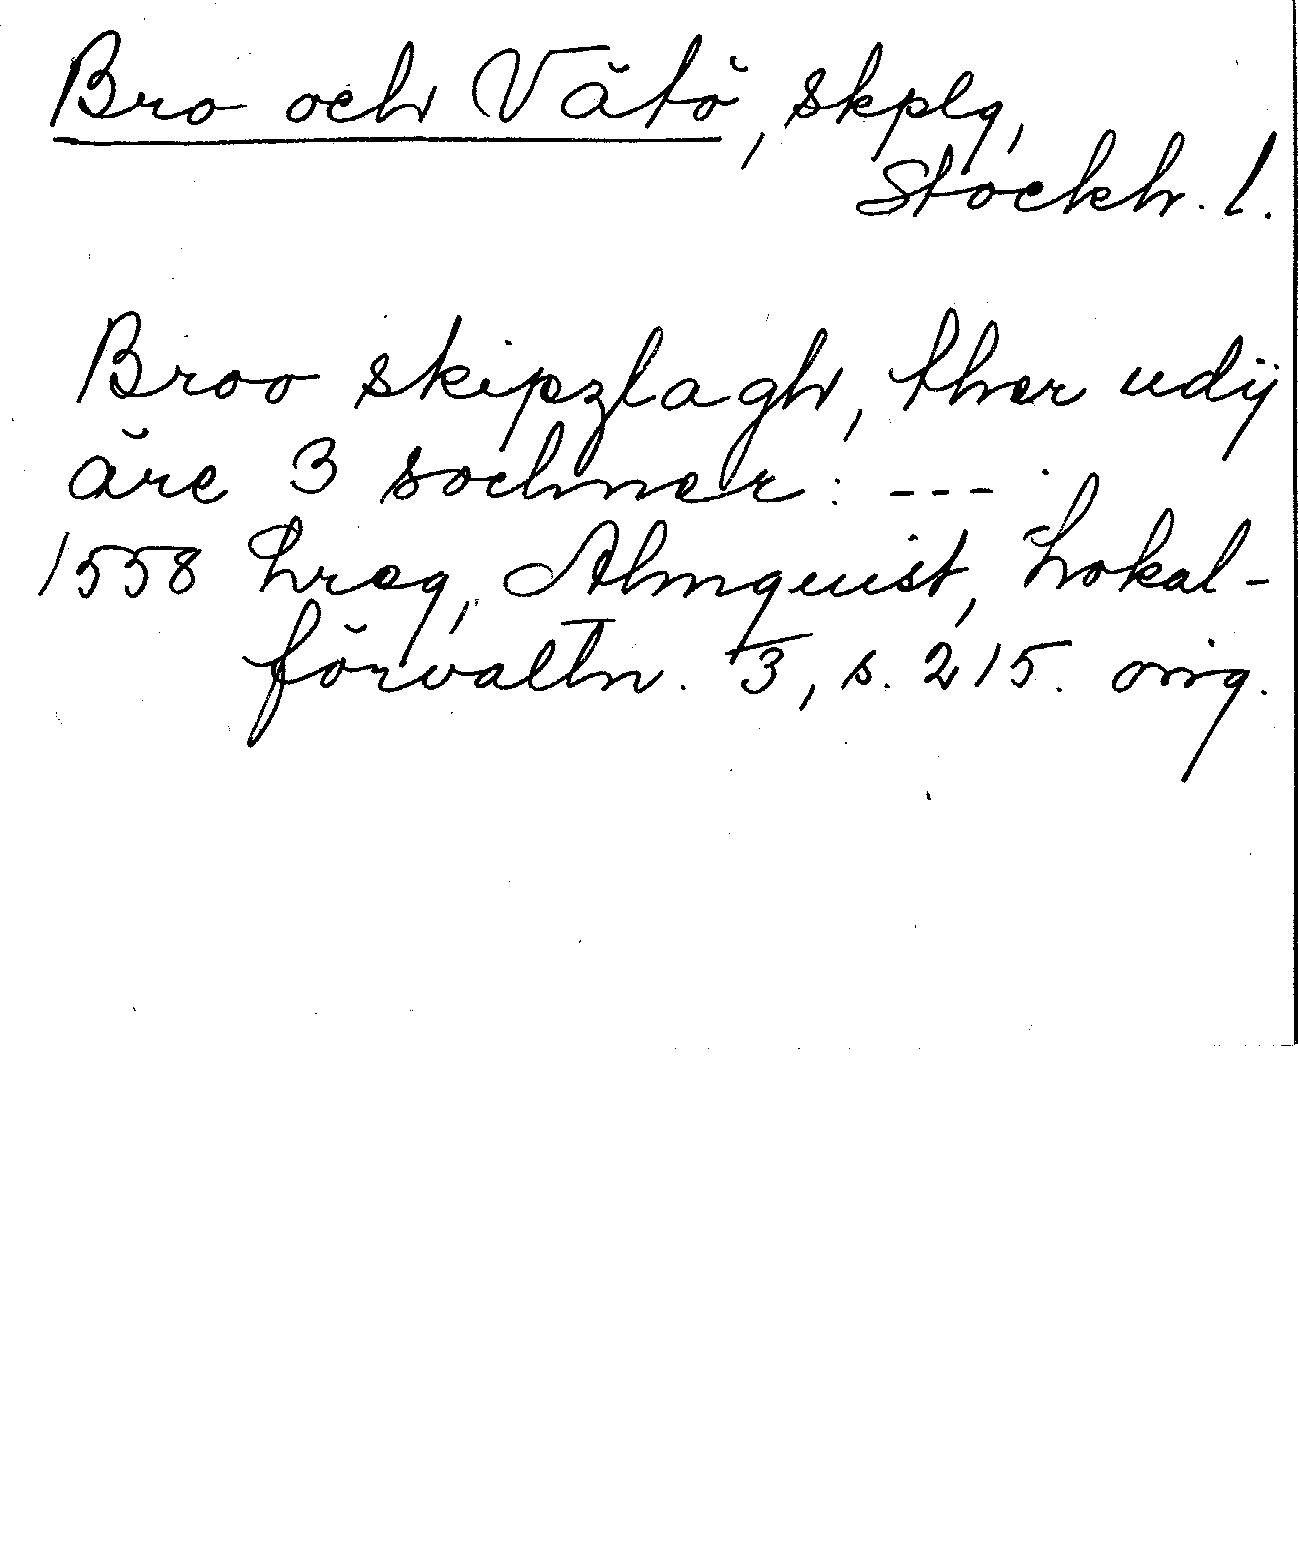 Bro och Vätö, skplg,
Stockh. l.
Broo skipzlagh, ther udij
äre 3 sochner: ---
1558 hreg, Almquist, Lokal-
förvaltn. 3, s. 215. orig.